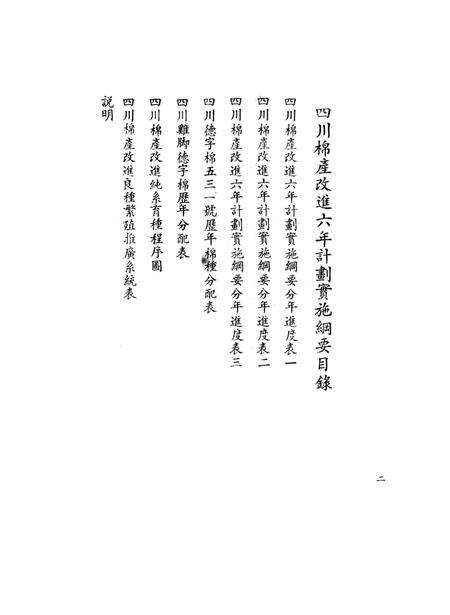 四川棉產改進六年計劃實施綱要目錄
四川棉產改進六年計劃實施綱要分年進度表一
四川棉產改進六年計劃實施綱要分年進度表二
四川棉產改進六年計劃實施綱要分年進度表三
四川德字棉五三一號歷年棉種分配表
四川雞脚德字棉歷年分配表
四川棉產改進純系育種程序圖
四川棉產改進良種繁殖推廣系統表
說明
二